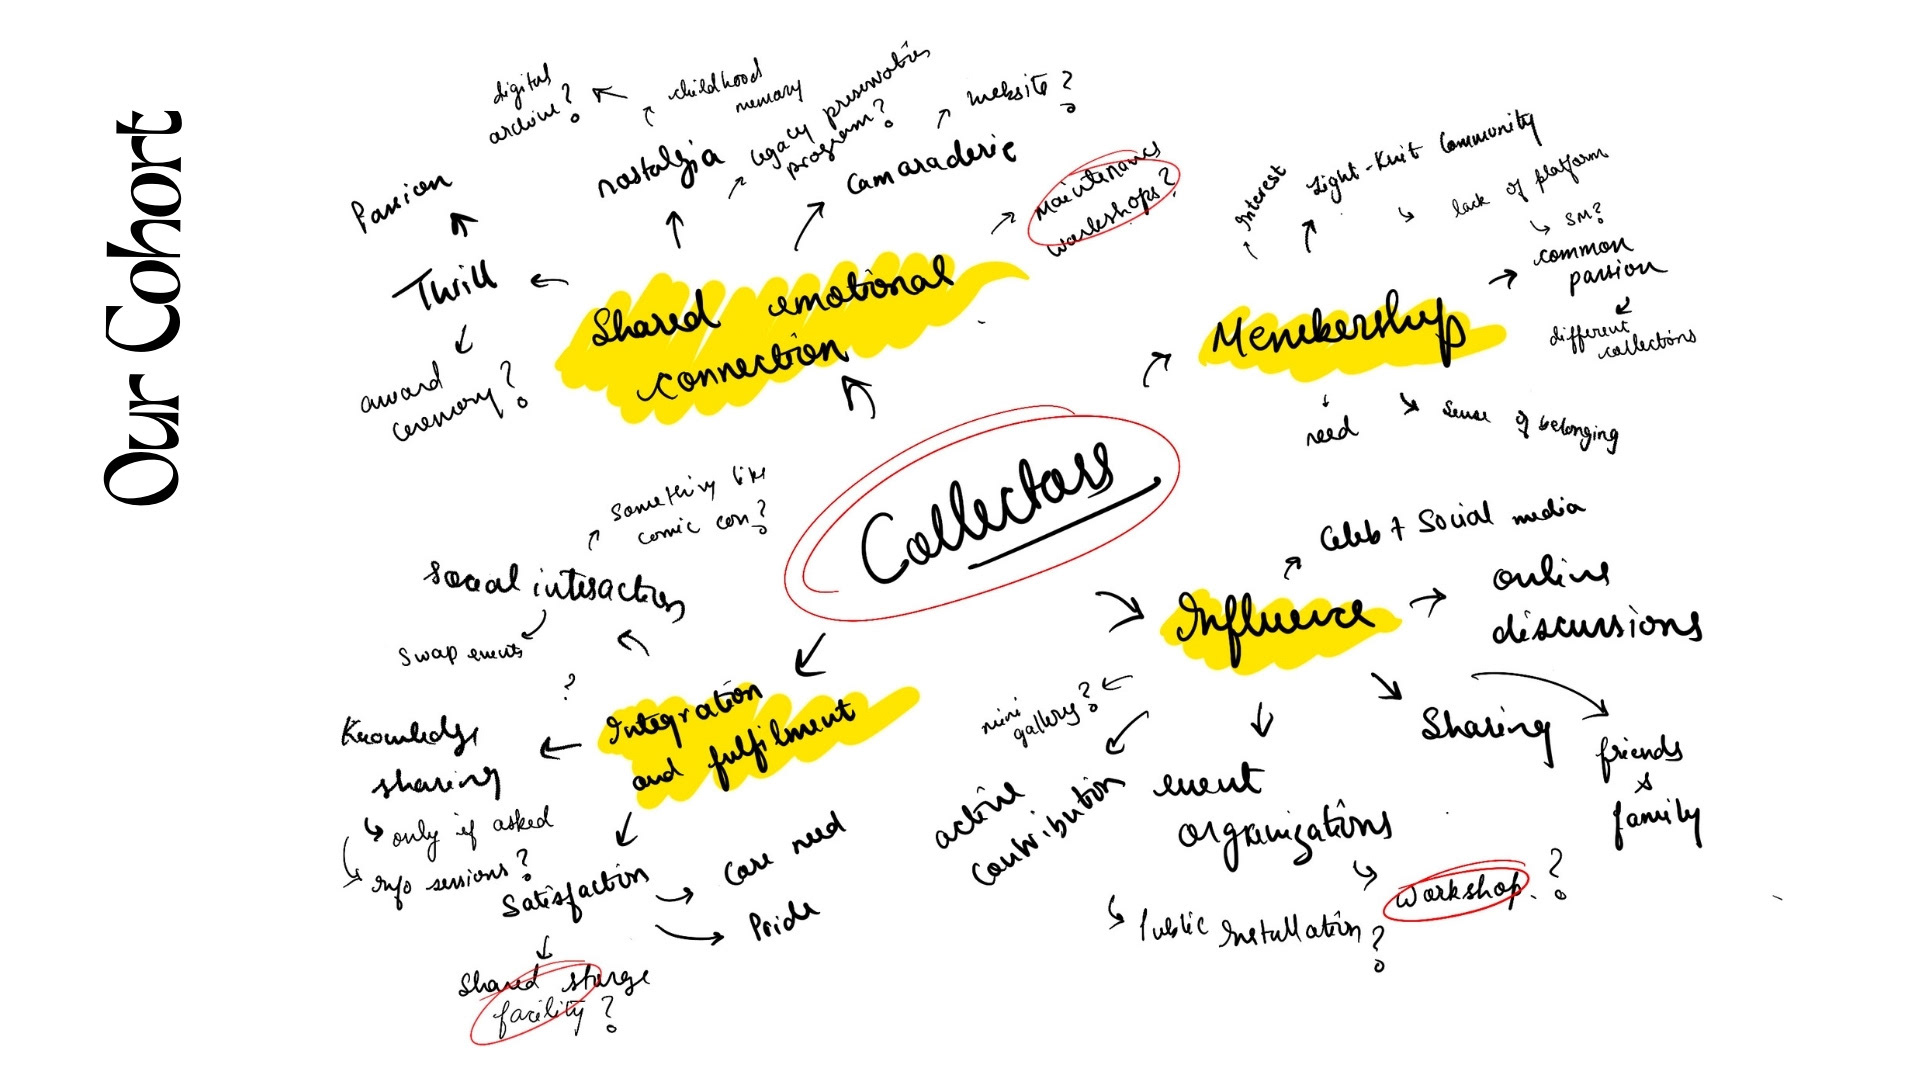 Our Cohort
digital
archive?
childhood
memory
legacy preservation
program?
website?
nostalgia
Camaraderie
Passion
Thrill
Maintenance
workshops?
award
ceremony?
Shared emotional
connection
Interest
Tight-Knit Community
lack of platform
SM?
common
passion
different
collections
Membership
need
Sense of belonging
Collectors
Something like
comic con?
Social interaction
Swap events
?
Knowledge
sharing
only if asked
Info sessions?
Integration
and fulfilment
Satisfaction
Care need
Pride
Shared storage
facility?
Celeb + Social media
Influence
online
discussions
Sharing
friends
&
family
mini
gallery?
active
contribution
event
organizations
Workshop?
Public Installation?